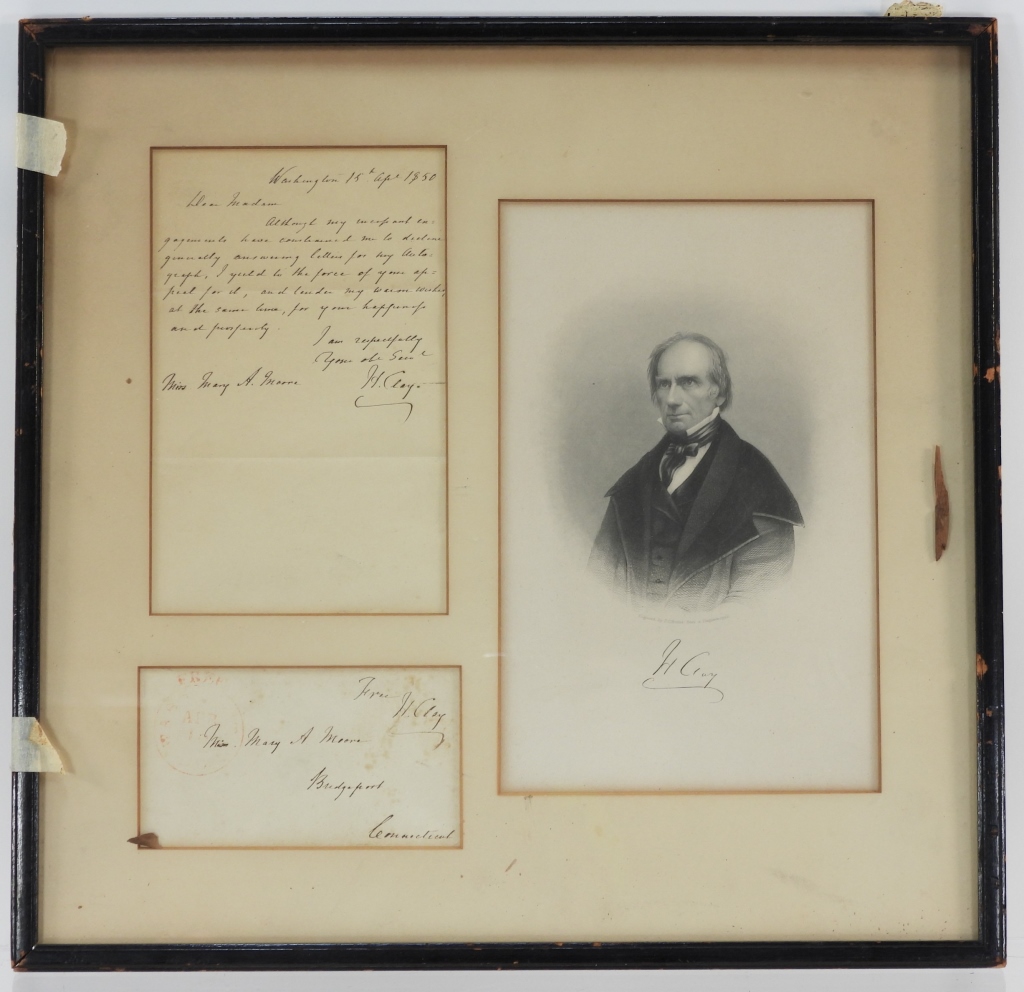 Washington 15th Apl 1850
Dear Madam
Although my incessant en-
gagements have constrained me to decline
generally answering letters for my Auto-
graph, I yield to the force of your ap-
peal for it, and tender my warm wishes,
at the same time, for your happiness
and prosperity.
I am respectfully
Your obt Servt
H. Clay
Miss Mary A. Moore
Free
H. Clay
Miss Mary A Moore
Bridgeport
Connecticut
H Clay